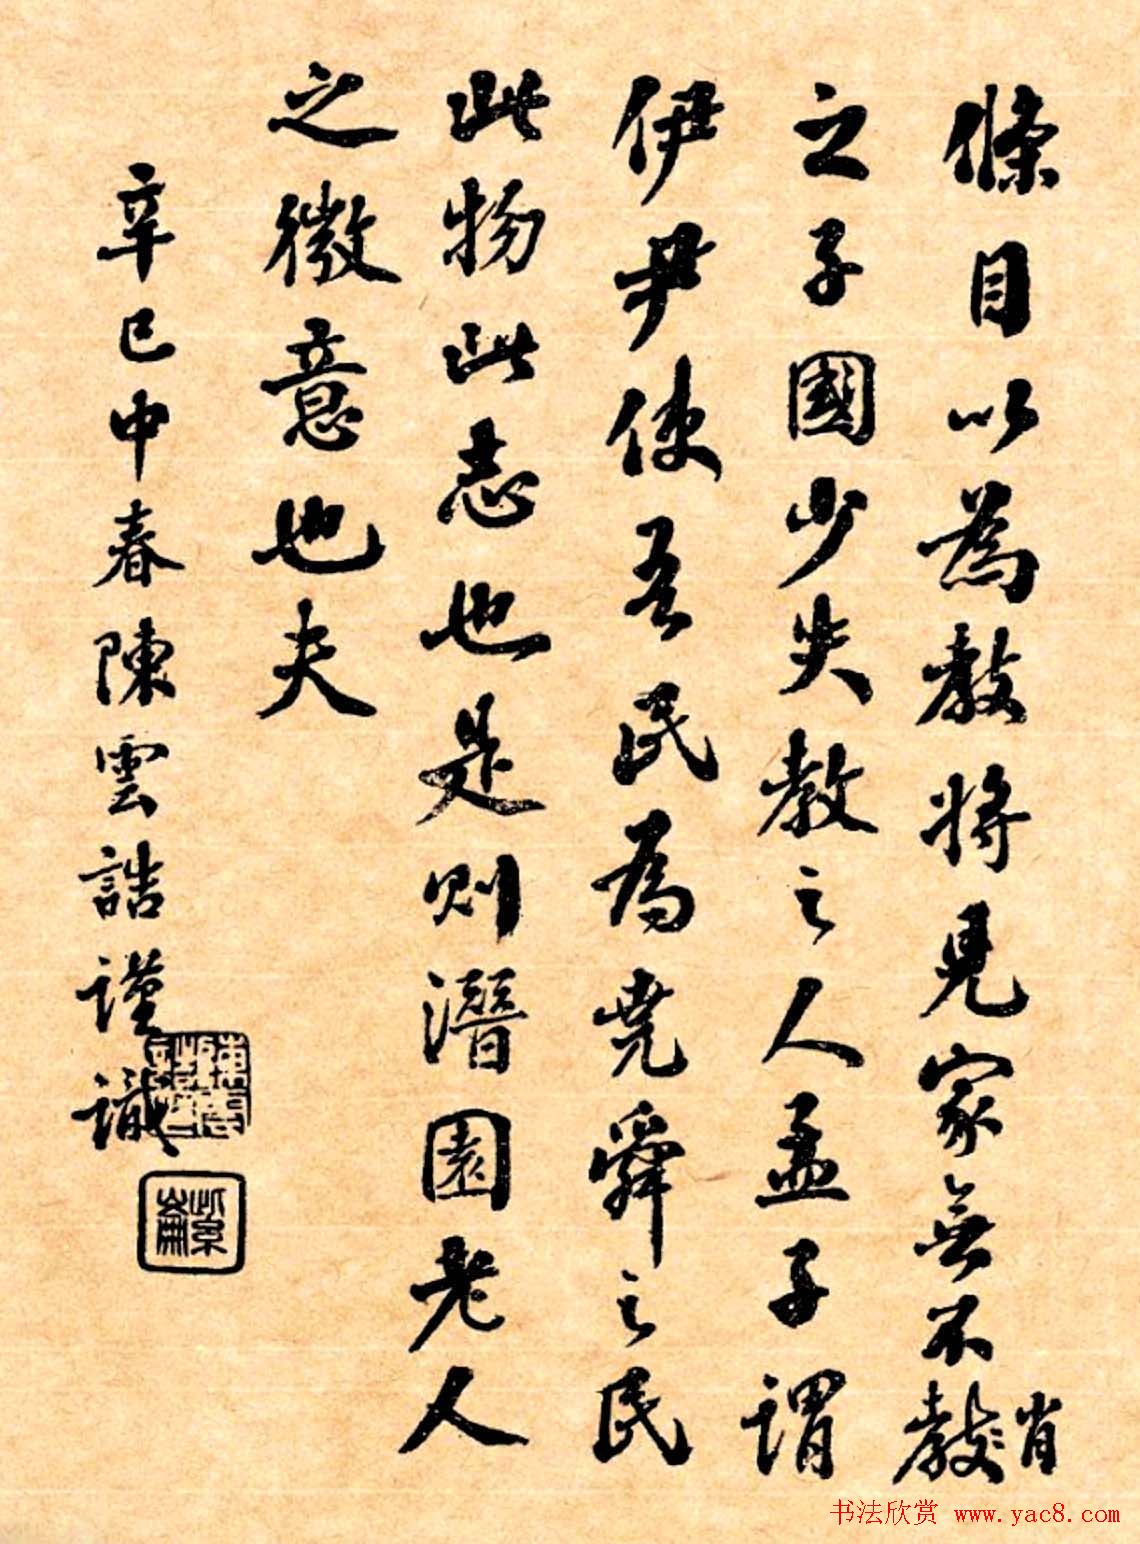 條目以為教將見家無不教肖
之子國少失教之人孟子謂
伊尹使吾民為堯舜之民
此物此志也是則潛園老人
之微意也夫
辛巳中春陳雲誥謹識
紫
书法欣赏 www.yac8.com